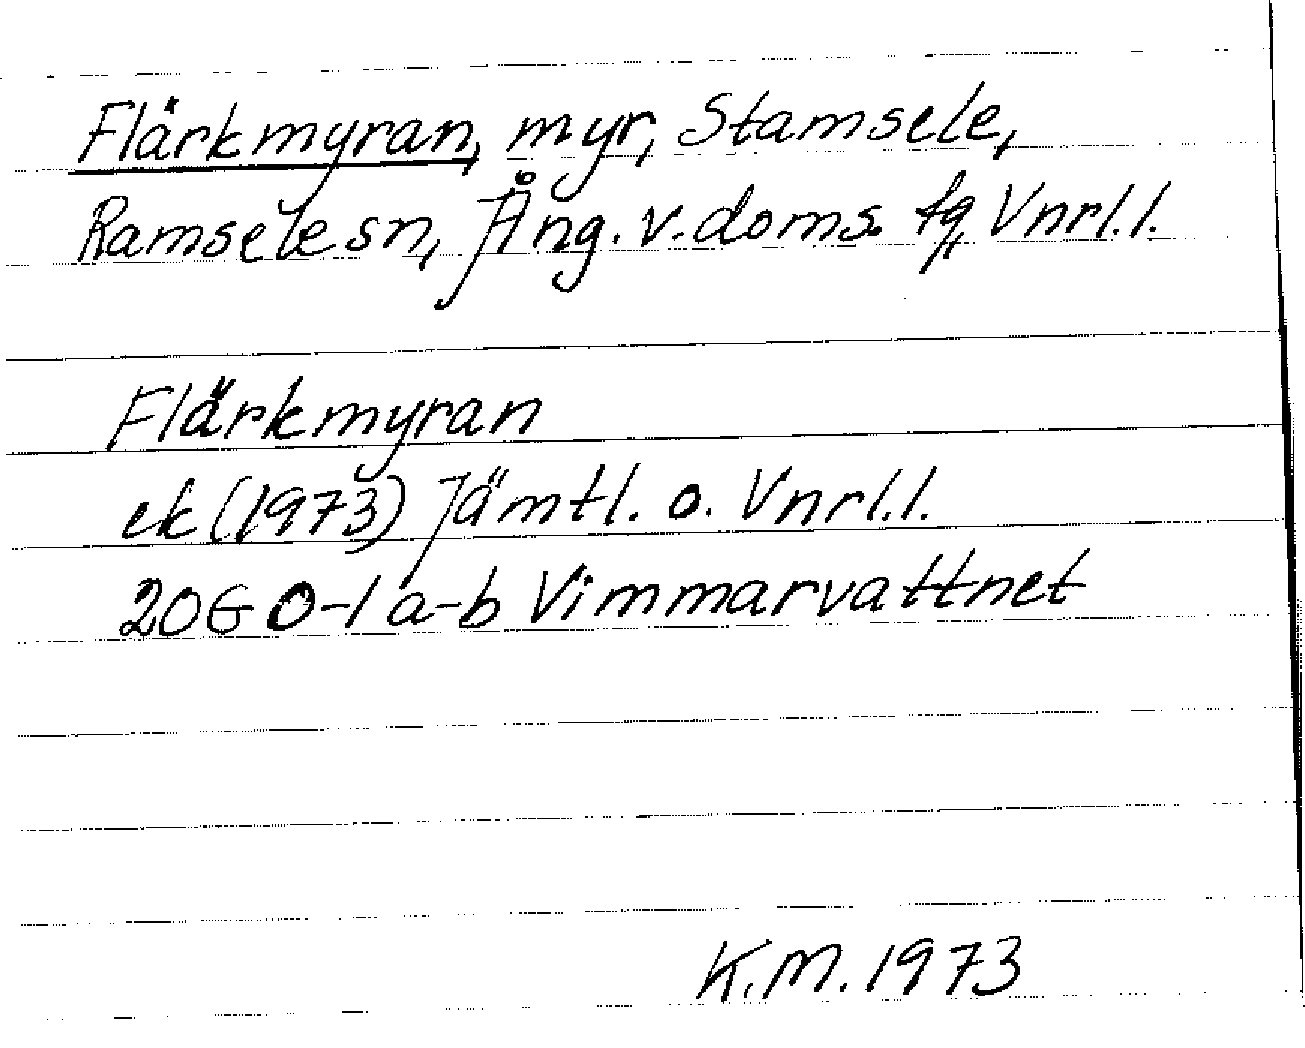 Flärkmyran, myr, Stamsele,
Ramsele sn, Ång. v. doms. fq Vnrl.l.
Flärkmyran
ek (1973) Jämtl. o. Vnrl.l.
20G 0-1 a-b Vimmarvattnet
K.M. 1973